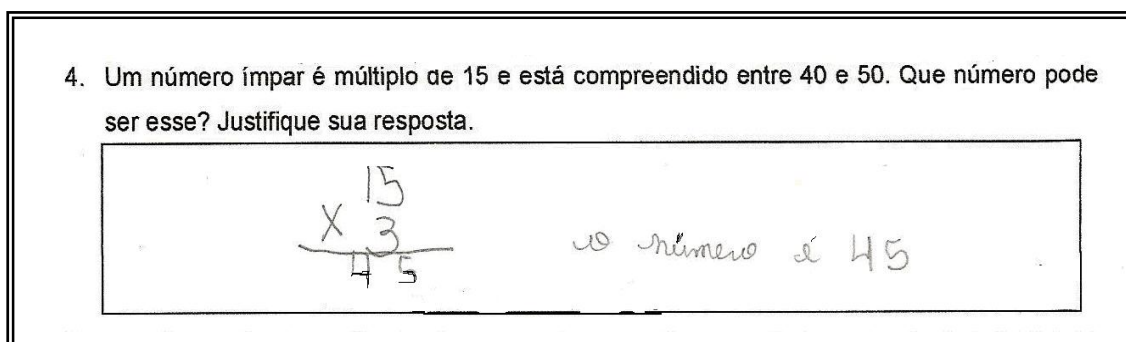 4. Um número ímpar é múltiplo de 15 e está compreendido entre 40 e 50. Que número pode
ser esse? Justifique sua resposta.
15
X 3
45
o número é 45